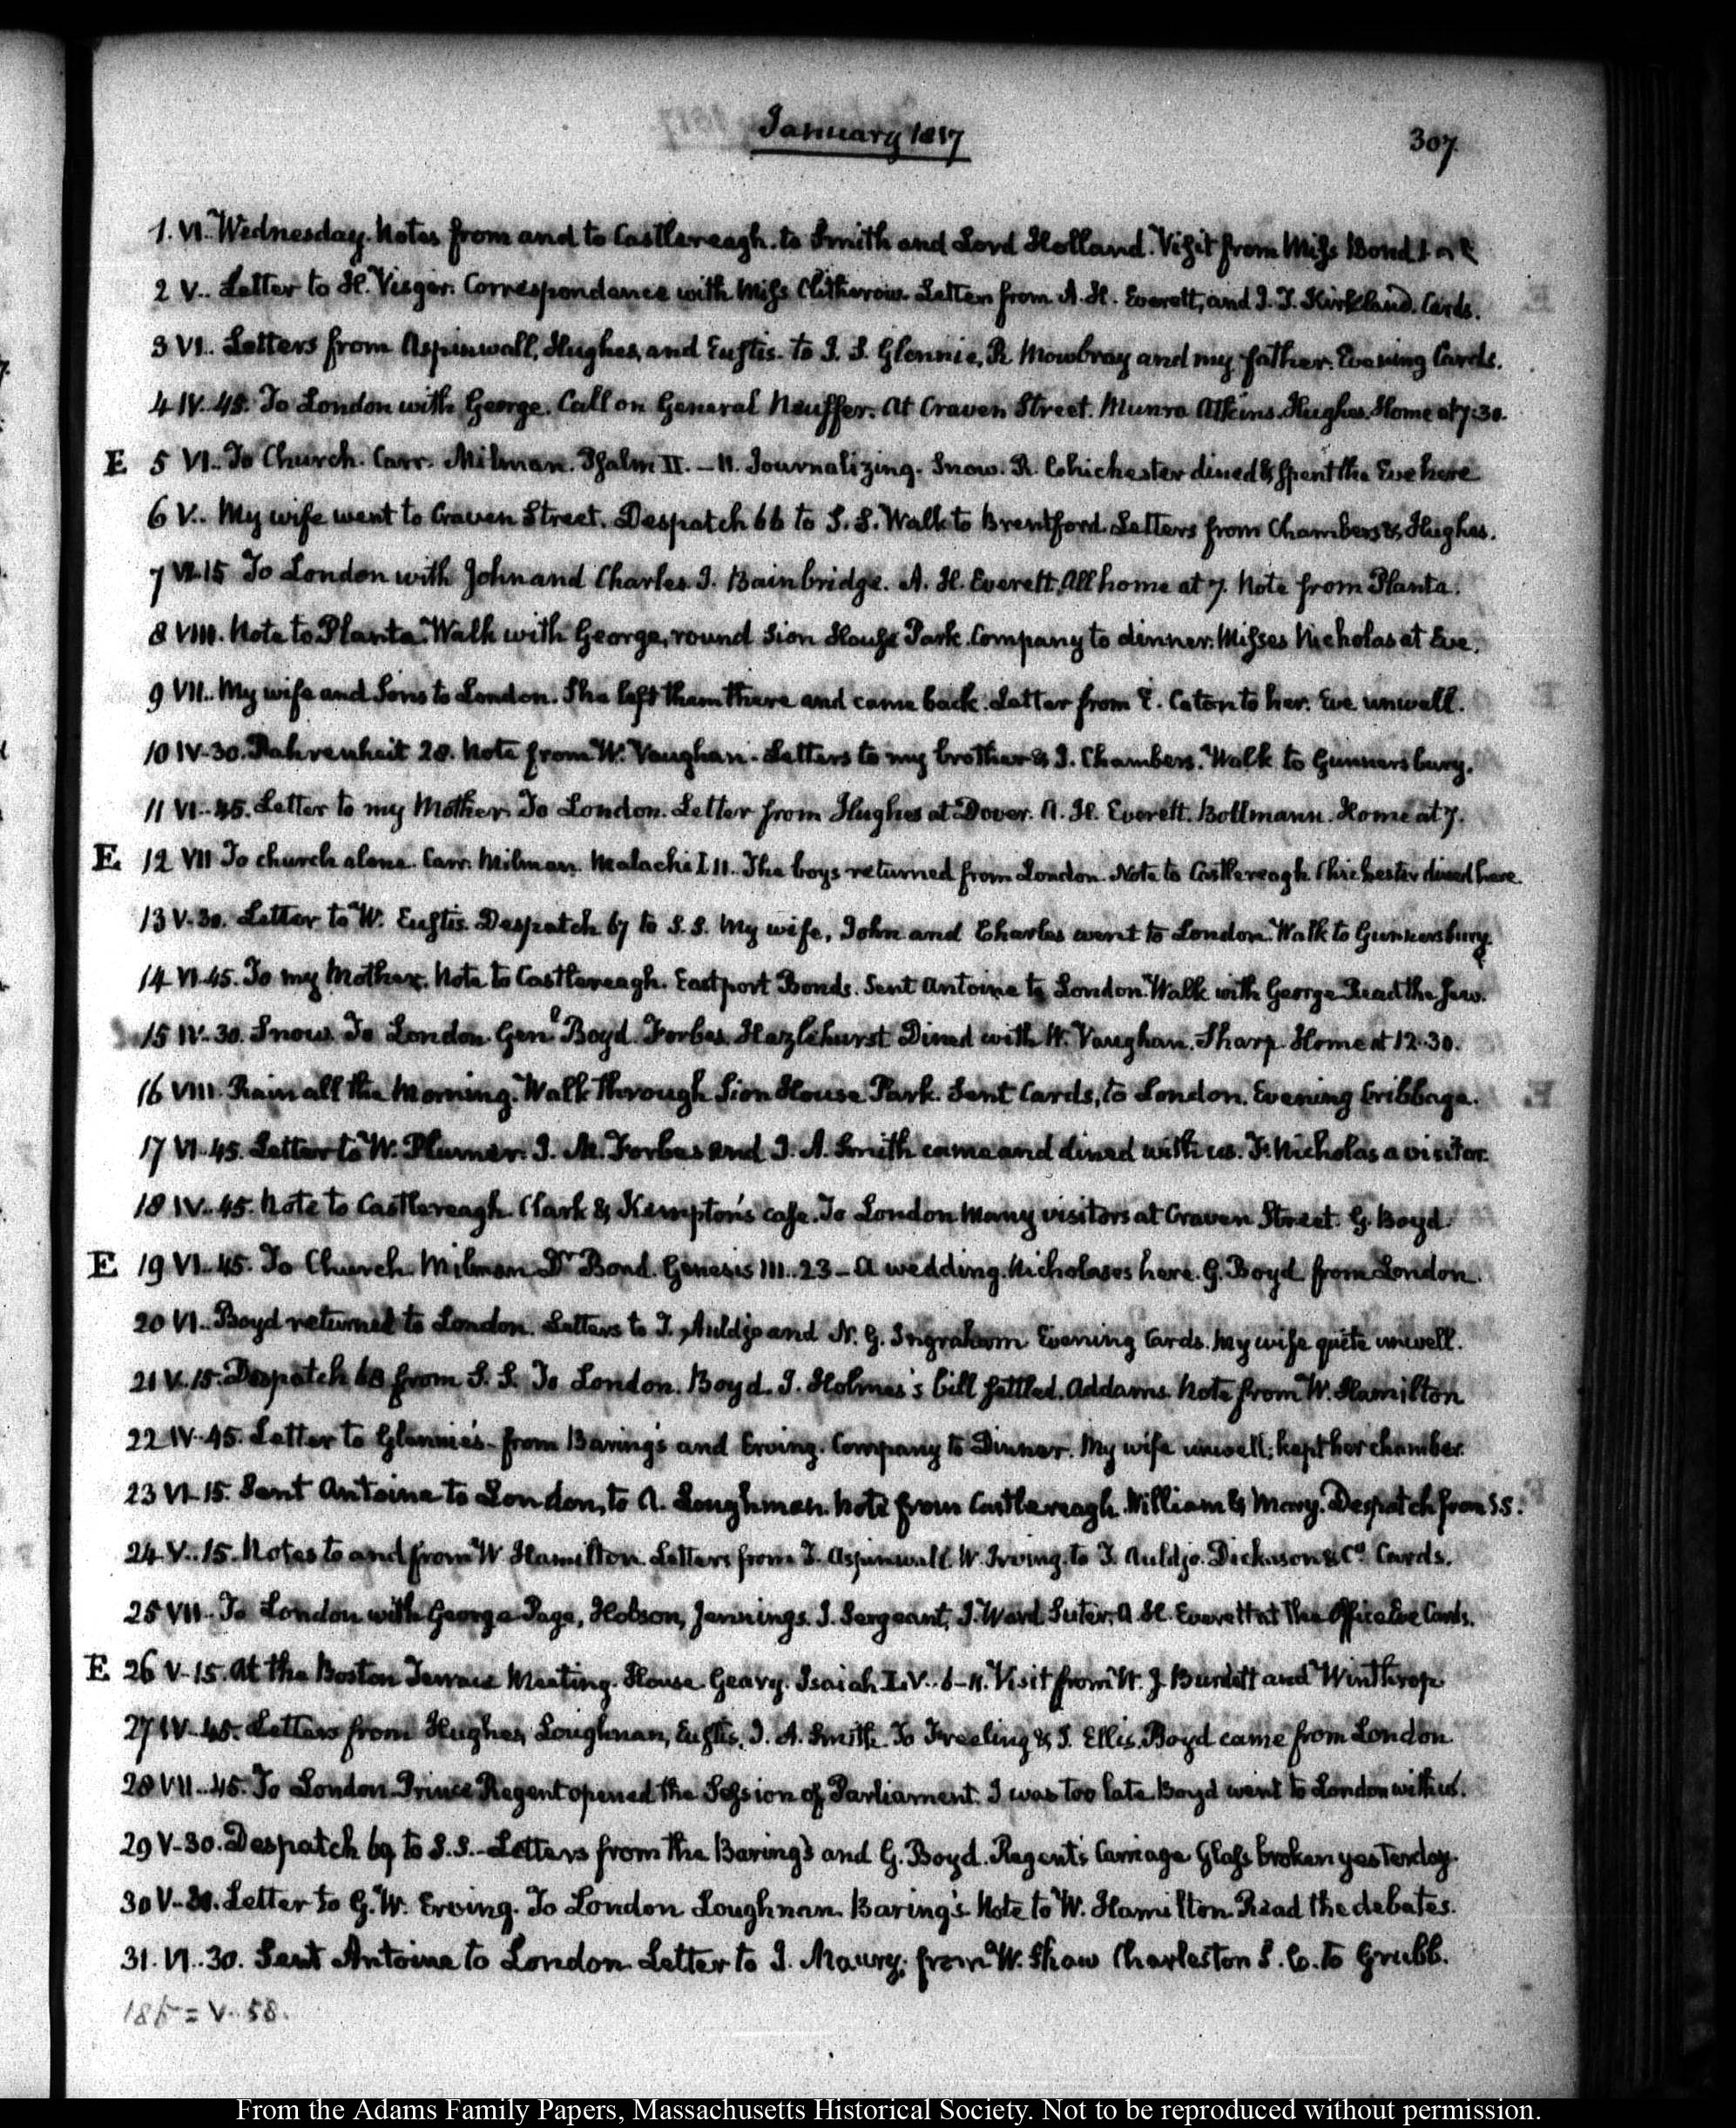 January 1817
307
1. VI. Wednesday. Notes from and to Castlereagh. to Smith and Lord Holland. Visit from Miss Bond
2 V.. Letter to H. Visger. Correspondence with Miss Clitherow. Letters from A. H. Everett, and J. T. Kirkland. Cards.
3 VI.. Letters from Aspinwall, Hughes, and Eustis. to J. S. Glennie, R Mowbray and my father. Evening Cards.
4 IV..45. To London with George. Call on General Neuffer. At Craven Street. Munro Atkins. Hughes. Home at 7.30.
E 5 VI.. To Church. Carr. Milman. Psalm II. – 11. Journalizing. Snow. R. Chichester dined & spent the Eve here
6 V.. My wife went to Craven Street. Despatch 66 to S. S. Walk to Brentford. Letters from Chambers & Hughes.
7 VI.15 To London with John and Charles. J. Bainbridge. A. H. Everett. All home at 7. Note from Planta.
8 VIII. Note to Planta. Walk with George, round Sion House Park. Company to dinner. Misses Nicholas at Eve.
9 VII. My wife and Sons to London. She left them there and came back. Letter from E. Caton to her. Eve unwell.
10 IV.30. Fahrenheit 28. Note from W. Vaughan. Letters to my brother & J. Chambers. Walk to Gunnersbury.
11 VI..45. Letter to my Mother. To London. Letter from Hughes at Dover. A. H. Everett. Bollmann. Home at 7.
E. 12 VII To church alone. Carr. Milman. Malachi I 11. The boys returned from London. Note to Castlereagh. Chichester dined here.
13 V.30. Letter to W. Eustis. Despatch 67 to S.S. My wife, John and Charles went to London. Walk to Gunnersbury
14 VI.45. To my Mother. Note to Castlereagh. Eastport Bonds. Sent Antoine to London. Walk with George. Read the Jew.
15 IV.30. Snow. To London. Genl. Boyd. Forbes. Hazlehurst Dined with W. Vaughan. Sharp. Home at 12.30.
16 VIII. Rain all the Morning. Walk through Sion House Park. Sent Cards, to London. Evening Cribbage.
17 VI.45. Letter to W. Plumer. J. M. Forbes and J. A. Smith came and dined with us. F. Nicholas a visitor.
18 IV..45. Note to Castlereagh. Clark & Kempton's case. To London Many visitors at Craven Street. G. Boyd
E 19 VI..45. To Church. Milman Dr Bond. Genesis III..23 – A wedding. Nicholases here. G. Boyd from London.
20 VI.. Boyd returned to London. Letters to T. Auldjo and N. G. Ingraham Evening Cards. My wife quite unwell.
21 V.15. Despatch 68 from S. S. To London. Boyd. J. Holmes's bill settled. Addams. Note from W. Hamilton
22 IV.45. Letter to Glennie's. from Baring's and Erving. Company to Dinner. My wife unwell; kept her chamber.
23 VI.15. Sent Antoine to London, to A. Loughman. Note from Castlereagh. William & Mary. Despatch from S.S.
24 V..15. Notes to and from W Hamilton. Letters from T. Aspinwall. W. Irving. to T. Auldjo. Dickason & Co. Cards.
25 VII.. To London with George Page, Hobson, Jennings. J. Sergeant, J. Ward Suter. A. H. Everett at the Office Eve Cards.
E 26 V.15. At the Boston Terrace Meeting House Geary. Isaiah I.V..6–11. Visit from W. J. Burdett and Winthrop
27 IV..45. Letters from Hughes, Loughnan, Eustis, J. A. Smith. To Freeling & T. Ellis. Boyd came from London
28 VII..45. To London. Prince Regent opened the Session of Parliament. I was too late. Boyd went to London with us.
29 V.30. Despatch 69 to S.S. Letters from the Baring's and G. Boyd. Regent's Carriage Glass broken yesterday.
30 V.30. Letter to G. W. Erving. To London Loughnan. Baring's. Note to W. Hamilton. Read the debates.
31. VI..30. Sent Antoine to London. Letter to J. Maury. from W. Shaw Charleston S. C. to Grubb.
185 = V..58.
From the Adams Family Papers, Massachusetts Historical Society. Not to be reproduced without permission.